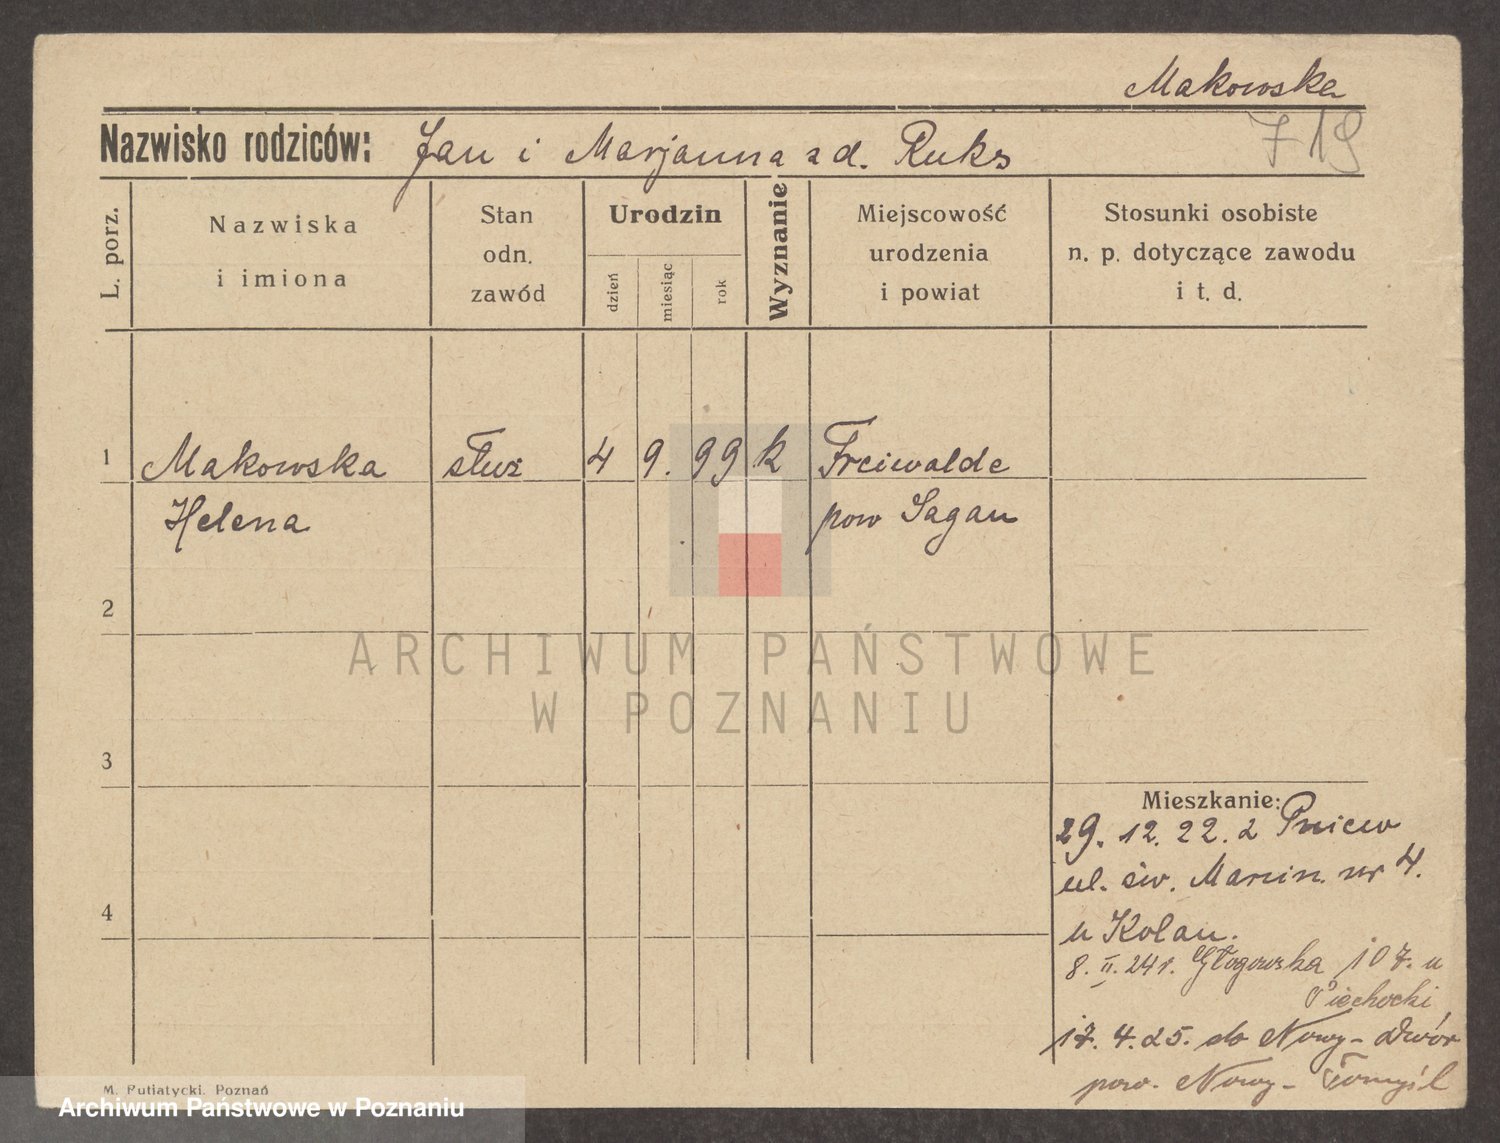 Makowska
Nazwisko rodziców: Jan i Marjanna z d. Ruks
719
L. porz.
Nazwiska
i imiona
Stan
odn.
zawód
Urodzin
dzień
miesiąc
rok
Wyznanie
Miejscowość
urodzenia
i powiat
Stosunki osobiste
n. p. dotyczące zawodu
i t. d.
1 Makowska służ 4 9. 99 k Freiwalde
Helena pow Sagan
2
ARCHIWUM PAŃSTWOWE
W POZNANIU
3
Mieszkanie:
29. 12. 22. z Pniew
ul. św. Marcin. nr 4.
4
u Kolan.
8. II. 24 r. Głogowska 107. u
Piechocki
17. 4. 25. do Nowy-Dwór
pow. Nowy-Tomyśl
M. Putiatycki. Poznań
Archiwum Państwowe w Poznaniu